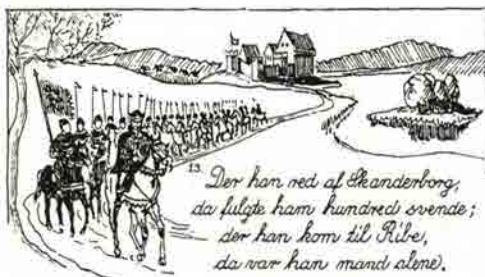 13.
Der han red af Skanderborg,
da fulgte ham hundred svende;
der han kom til Ribe,
da var han mand alene.